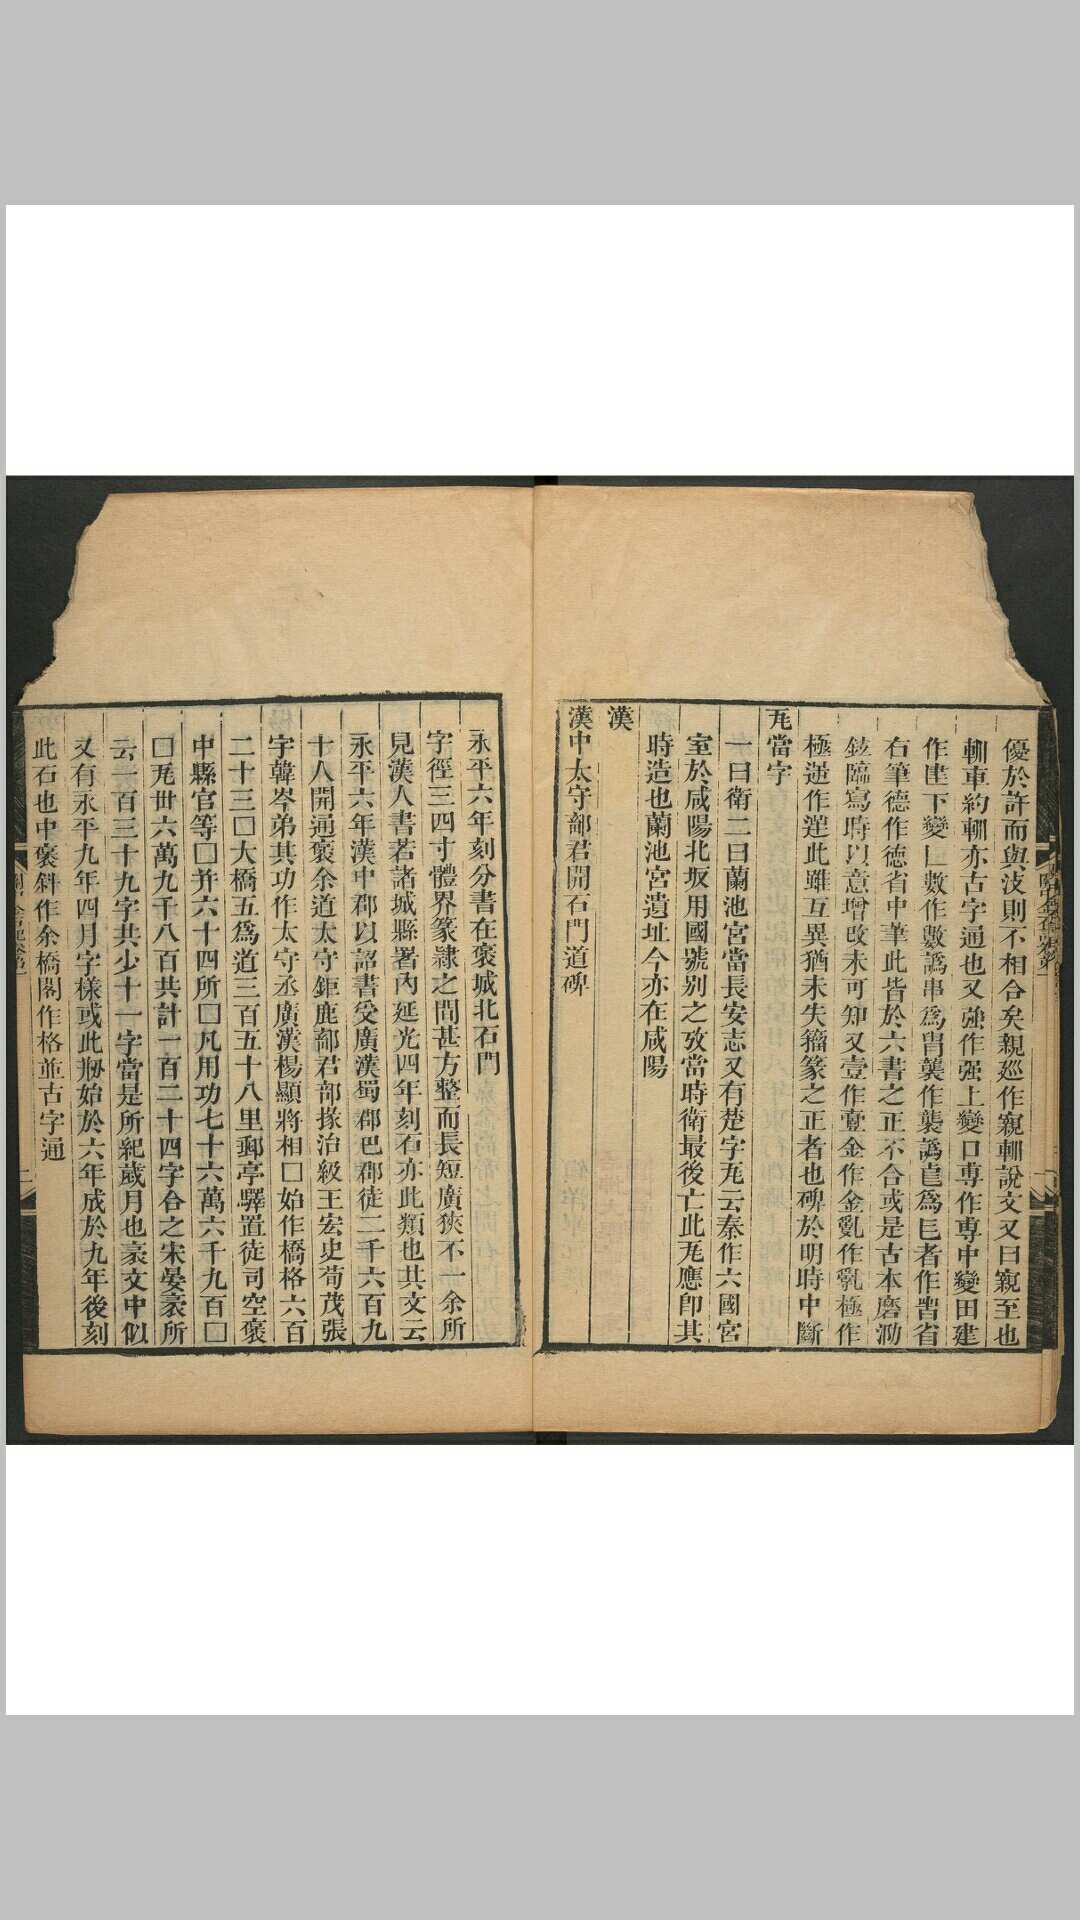 優於許而與汥則不相合矣親廵作窺輣說文又曰窺至也
輣車約輣亦古字通也又強作强上變口専作専中變田建
作𡉀下變𠃊數作數譌串爲胄龔作龔譌𦣞爲㠯者作㫖省
右筆德作徳省中筆此皆於六書之正不合或是古本磨泐
鉉臨寫時以意增改未可知又壹作壹金作金亂作亂極作
極逆作逆此雖互異猶未失籀篆之正者也碑於明時中斷
瓦當字
一曰衛二曰蘭池宮當長安志又有楚字瓦云秦作六國宮
室於咸陽北坂用國號别之攷當時衛最後亡此瓦應卽其
時造也蘭池宮遺址今亦在咸陽
漢
漢中太守鄐君開石門道碑
永平六年刻分書在褒城北石門
字徑三四寸體界篆隷之間甚方整而長短廣狹不一余所
見漢人書若諸城縣署內延光四年刻石亦此類也其文云
永平六年漢中郡以詔書受廣漢蜀郡巴郡徒二千六百九
十八開通褒余道太守鉅鹿鄐君部掾治級王宏史荀茂張
字韓岑弟其功作太守丞廣漢楊顯將相囗始作橋格六百
二十三囗大橋五爲道三百五十八里郵亭驛置徒司空褒
中縣官等囗并六十四所囗凡用功七十六萬六千九百囗
囗瓦丗六萬九千八百共計一百二十四字合之宋晏袤所
云一百三十九字共少十一字當是所紀歲月也袤文中似
又有永平九年四月字樣或此刱始於六年成於九年後刻
此石也中褒斜作余橋閣作格並古字通